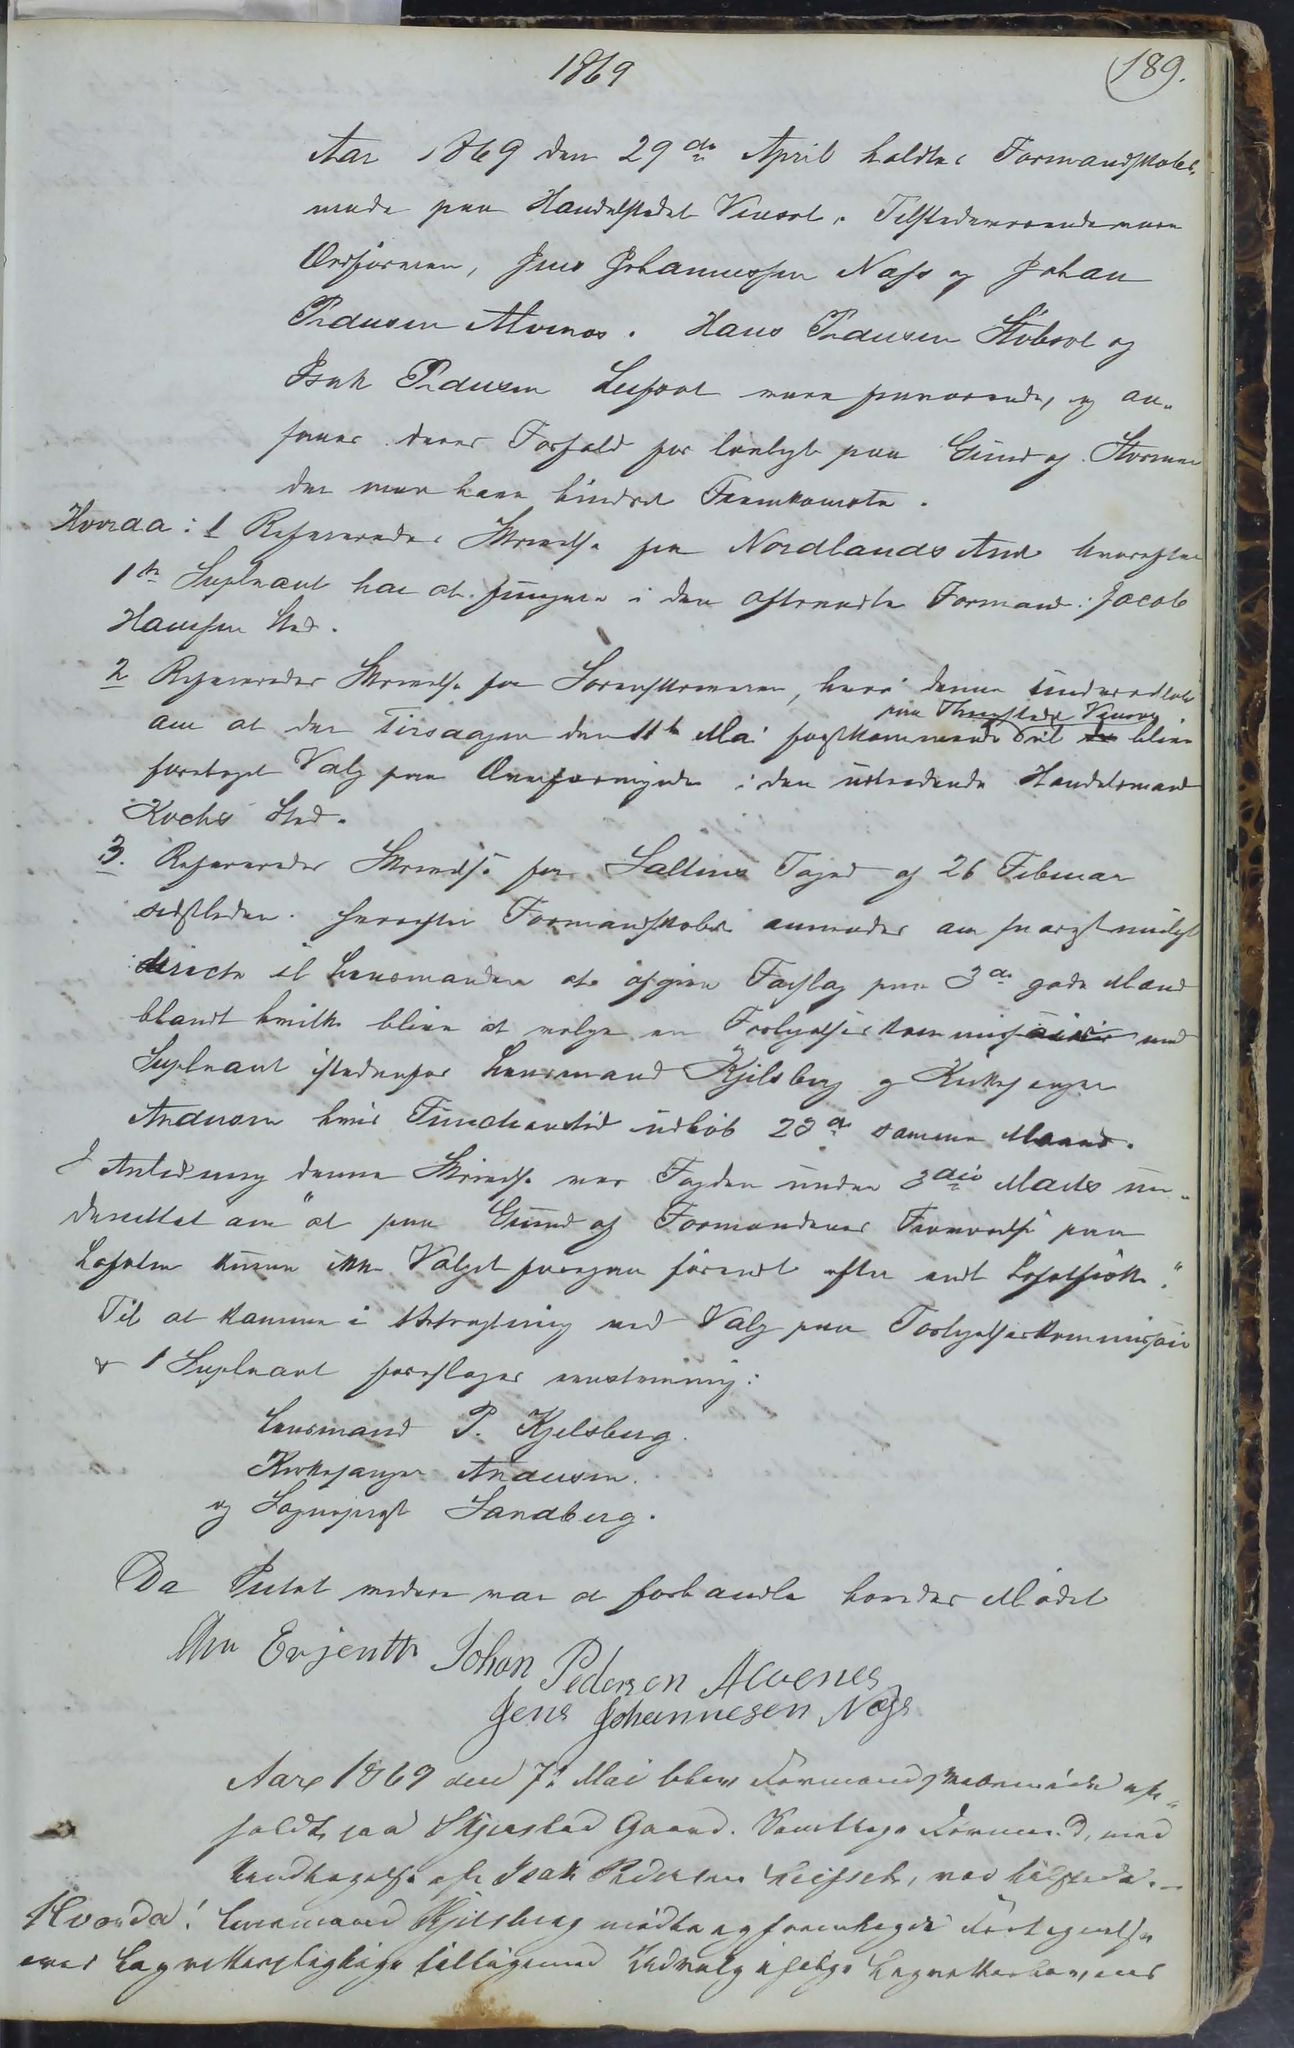 1869
189.
Aar 1869 den 29de April holdtes Formandskabs-
møde paa Handelstedet Venset. Tilstedeværende vare
Ordføreren, Jens Johannessen Næss og Johan
Pedersen Alvenes. Hans Pedersen Støvset og
Isak Pedersen Leifset vare fraværende, og an-
saaes deres Forfald for lovligt paa Grund af Stormen
der maa have hindret Fremkomsten.
Hvorda: 1 Refereredes Skrivelse fra Nordlands Amt hvorefter
1ste Supleant har at fungere i den afstaaede Formand: Jacob
Hansen Sted.
2 Refereredes Skrivelse fra Sorenskriveren, hvori denne underretter
om at der Tirsdagen den 11te Mai førstkommende vil blive
paa Thingstedet Venset
foretaget Valg paa Overformynder i den udtrædende Handelsmand
Kochs Sted.
3. Refereredes Skrivelse fra Saltens Foged af 26 Februar
sidstleden. hvorefter Formandskabet anmodes om snarest muligt
directe til Lensmanden at afgive Forslag paa 3de gode Mænd
blandt hvilke bliver at vælge en Forlygelseskommissair med
Supleant istedenfor Lensmand Kjelsberg og Kirkesanger
Andersen hvis Functionstid udløb 23de samme Maaned.
I Anledning denne Skrivelse var Fogden under 3die Marts un-
derrettet om "at paa Grund af Formændenes Fraværelse paa
Lofoten kunne ikke Valget foregaa førend efter endt Lofotfiske."
Til at komme i Betragtning ved Valg paa Forlygelseskommissair
& 1 Supleant foreslages eenstemmig:
Lensmand P. Kjelsberg.
Kirkesanger Andersen.
og Sogneprest Sandberg.
Da Intet videre var at forhandle hævedes Mødet
Erjenth Johan Pedersen Alvenes
Jens Johannesen Næss
Aar 1869 den 7: Mai blev Formandskabsmøde af-
holdt paa Skjerstad Gaard. Samtlige Formænd, med
Undtagelse af Isak Pedersen Leifset, var tilstede.-
Hvorda! Lensmand Kjelsberg mødte og foretoges Fortegnelse
over Lagrettespligtige tilligemed Udvalg ifølge Lagrettelovens